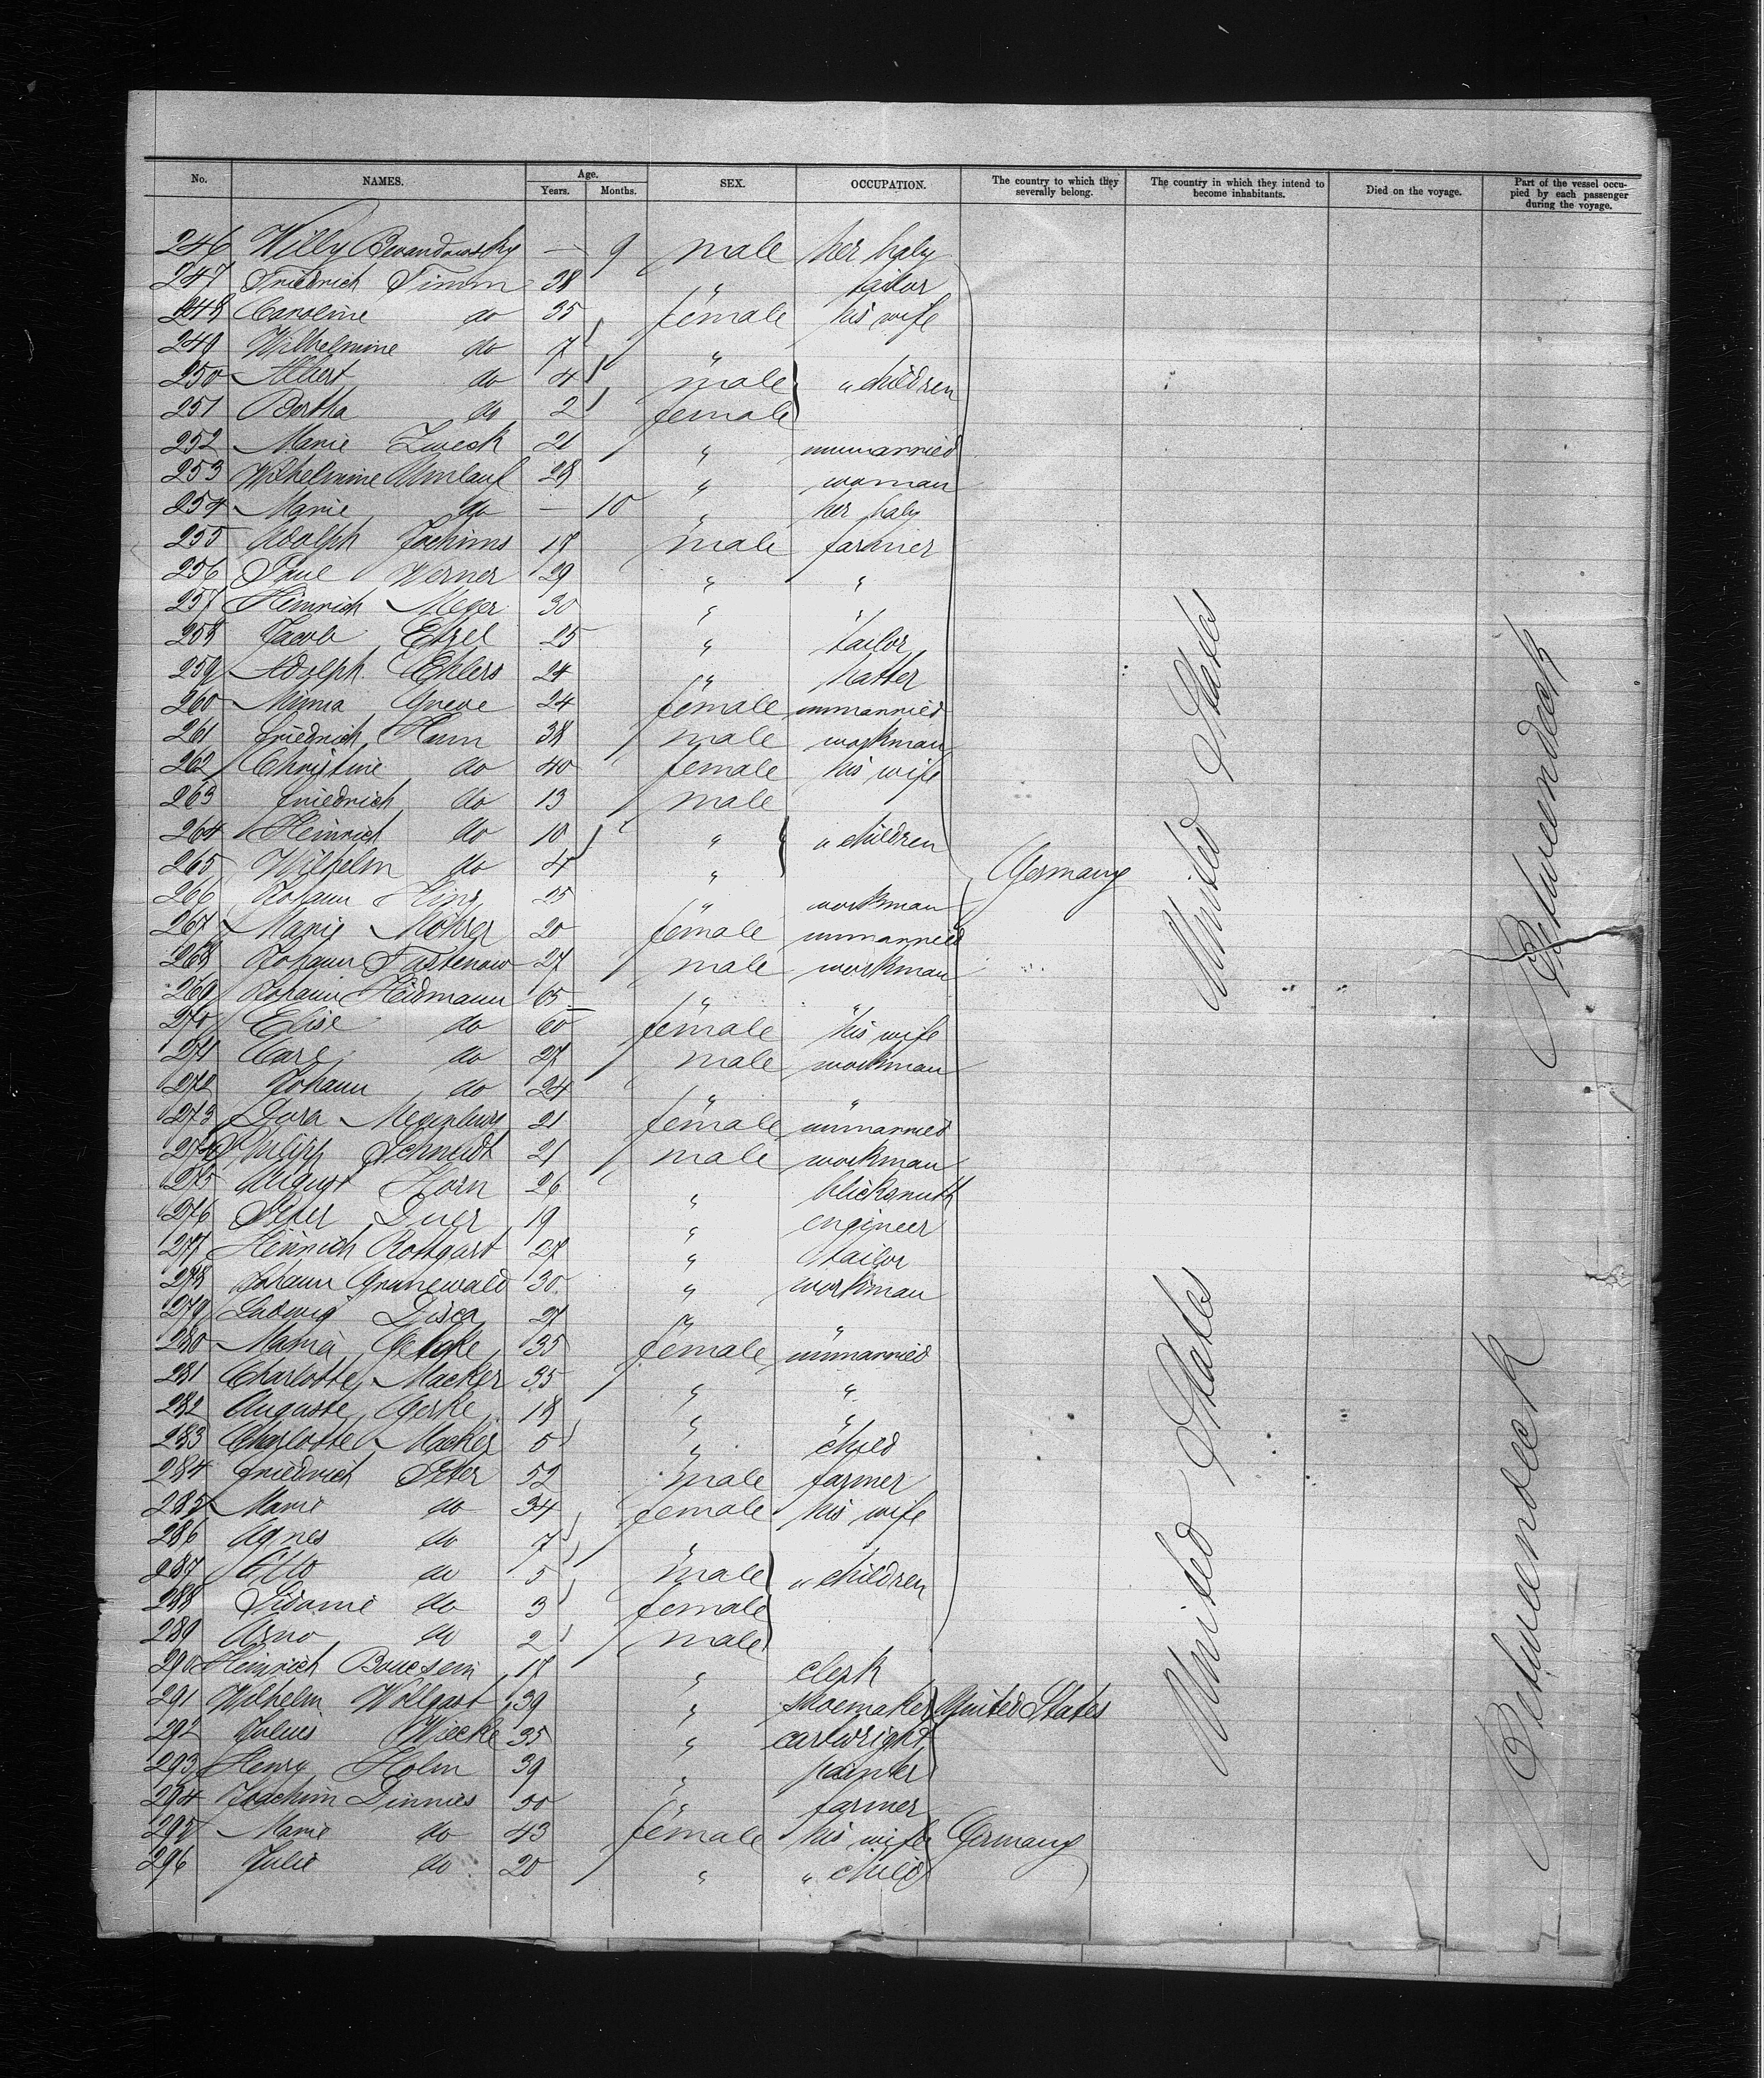 No. NAMES. Age. Years. Months. SEX. OCCUPATION. The country to which they severally belong. The country in which they intend to become inhabitants. Died on the voyage. Part of the vessel occupied by each passenger during the voyage.
246 Willy — 9 male her baby
247 Friedrich Timm 38 " tailor
248 Caroline do 35 female his wife
249 Wilhelmine do 7 "
250 Albert do 4 male " children
251 Bertha do 2 female
252 Marie Zweck 21 " unmarried
253 Wilhelmine Umlauf 28 " woman
254 Marie do — 10 " her baby
255 Adolph Jochims 17 male farmer
256 Paul Werner 29 " "
257 Heinrich Meyer 30 " "
258 Jacob Etzel 25 " tailor
259 Adolph Ehlers 24 " hatter
260 Minna Greve 24 female unmarried
261 Friedrich Hann 38 male workman
262 Christine do 40 female his wife
263 Friedrich do 13 male
264 Heinrich do 10 " " children
265 Wilhelm do 4 " Germany United States Betweendeck
266 Johann 25 " workman
267 Marie 20 female unmarried
268 Johann Fastenow 27 male workman
269 Johann Heidmann 65 " "
270 Elise do 60 female his wife
271 Carl do 27 male workman
272 Johann do 24 " "
273 Dora 21 female unmarried
274 Philipp Schmidt 21 male workman
275 August Horn 26 " blicksmith
276 Peter Duer 19 " engineer
277 Heinrich Rottgart 27 " tailor
278 Johann Grunewald 30 " workman
279 Ludwig 27 " "
280 Maria 35 female unmarried
281 Charlotte Macker 35 " "
282 Auguste Gerke 18 " "
283 Charlotte Macker 5 " child
284 Friedrich 52 male farmer
285 Marie do 34 female his wife
286 Agnes do 7 "
287 Otto do 5 male " children
288 Sidonie do 3 female
289 Arno do 2 male
290 Heinrich Boucsein 17 " clerk
291 Wilhelm Wollgast 39 " shoemaker United States United States Betweendeck
292 Julius Wiecke 35 " cartwright
293 Henry Holm 39 " painter
294 Joachim Dinnies 50 " farmer
295 Marie do 43 female his wife Germany
296 Julie do 20 " " child